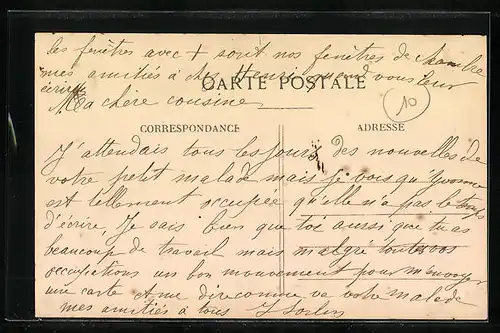 les fenêtres avec + sont nos fenêtres de chambre
mes amitiés à chez Henri quand vous leur
écrirez
CARTE POSTALE
Ma chère cousine
10
CORRESPONDANCE
ADRESSE
J'attendais tous les jours des nouvelles de
votre petit malade mais je vois qu'Yvonne
est tellement occupée qu'elle n'a pas le temps
d'écrire, Je sais bien que toi aussi que tu as
beaucoup de travail mais malgré toutes vos
occupations un bon mouvement pour m'envoyer
une carte A me dire comme va votre malade
mes amitiés à tous